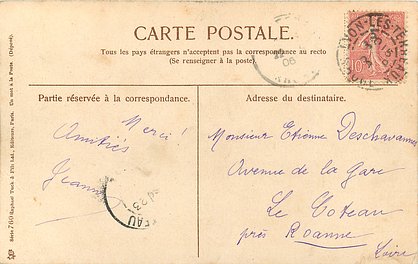 CARTE POSTALE.
Tous les pays étrangers n'acceptent pas la correspondance au recto
(Se renseigner à la poste.)
Partie réservée à la correspondance.
Adresse du destinataire.
Merci!
Amitiés
Jeanne
Monsieur Etienne Deschavannes
Avenue de la Gare
Le Coteau
près Roanne
Loire
Série 760 Raphael Tuck & Fils Ltd., Editeurs, Paris. Un mot à la Poste. (Déposé).
LYON-LES-TERREAUX
RHONE
10
06
EAU